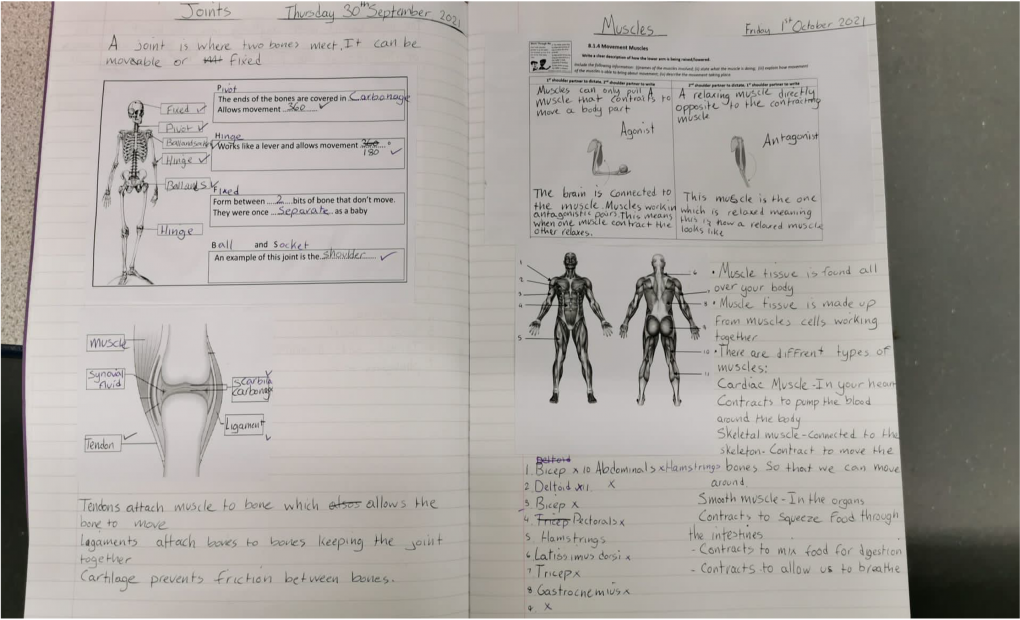 Joints Thursday 30th September 2021
A Joint is where two bones meet. It can be
moveable or fixed
Pivot
The ends of the bones are covered in Carbonage
Allows movement 360
Hinge
Works like a lever and allows movement 360 °
180
Fixed
Form between 2 bits of bone that don't move.
They were once Separate as a baby
Ball and Socket
An example of this joint is the shoulder
Fixed
Pivot
Hinge
Ball and S
Hinge
Muscle
Synoval
fluid
Tendon
carbonage
Ligament
Tendons attach muscle to bone which allows the
bone to move
Ligaments attach bones to bones keeping the joint
together
Cartilage prevents friction between bones.
Muscles Friday 1st October 2021
8.1.6 Movement Muscles
Write a clear description of how the lower arm is being raised/lowered.
1st shoulder partner to dictate, 2nd shoulder partner to write
2nd shoulder partner to dictate, 1st shoulder partner to write
Muscles can only pull A
muscle that contracts to
move a body part
Agonist
The brain is connected to
the muscle. Muscles work in
antagonistic pairs. This means
when one muscle contract the
other relaxes.
A relaxing muscle directly
opposite to the contracting
muscle
Antagonist
This muscle is the one
which is relaxed meaning
this is how a relaxed muscle
looks like
1
2
3
4
5
6
8
9
10
11
• Muscle tissue is found all
over your body
• Muscle tissue is made up
from muscles cells working
together
• There are diffrent types of
muscles:
Cardiac Muscle - In your heart
Contracts to pump the blood
around the body
Skeletal muscle - connected to the
skeleton. Contract to move the
bones So that we can move
around
Smooth muscle - In the organs
Contracts to squeeze food through
the intestines
- Contracts to mix food for dgestion
- Contracts to allow us to breathe
Deltoid
1 Bicep x 10 Abdominals x Hamstrings
2 Deltoid x 11. x
3 Bicep x
4 Tricep Pectorals x
5 Hamstrings
6 Latissimus dorsi x
7 Tricep x
8 Gastrocnemius x
9 x